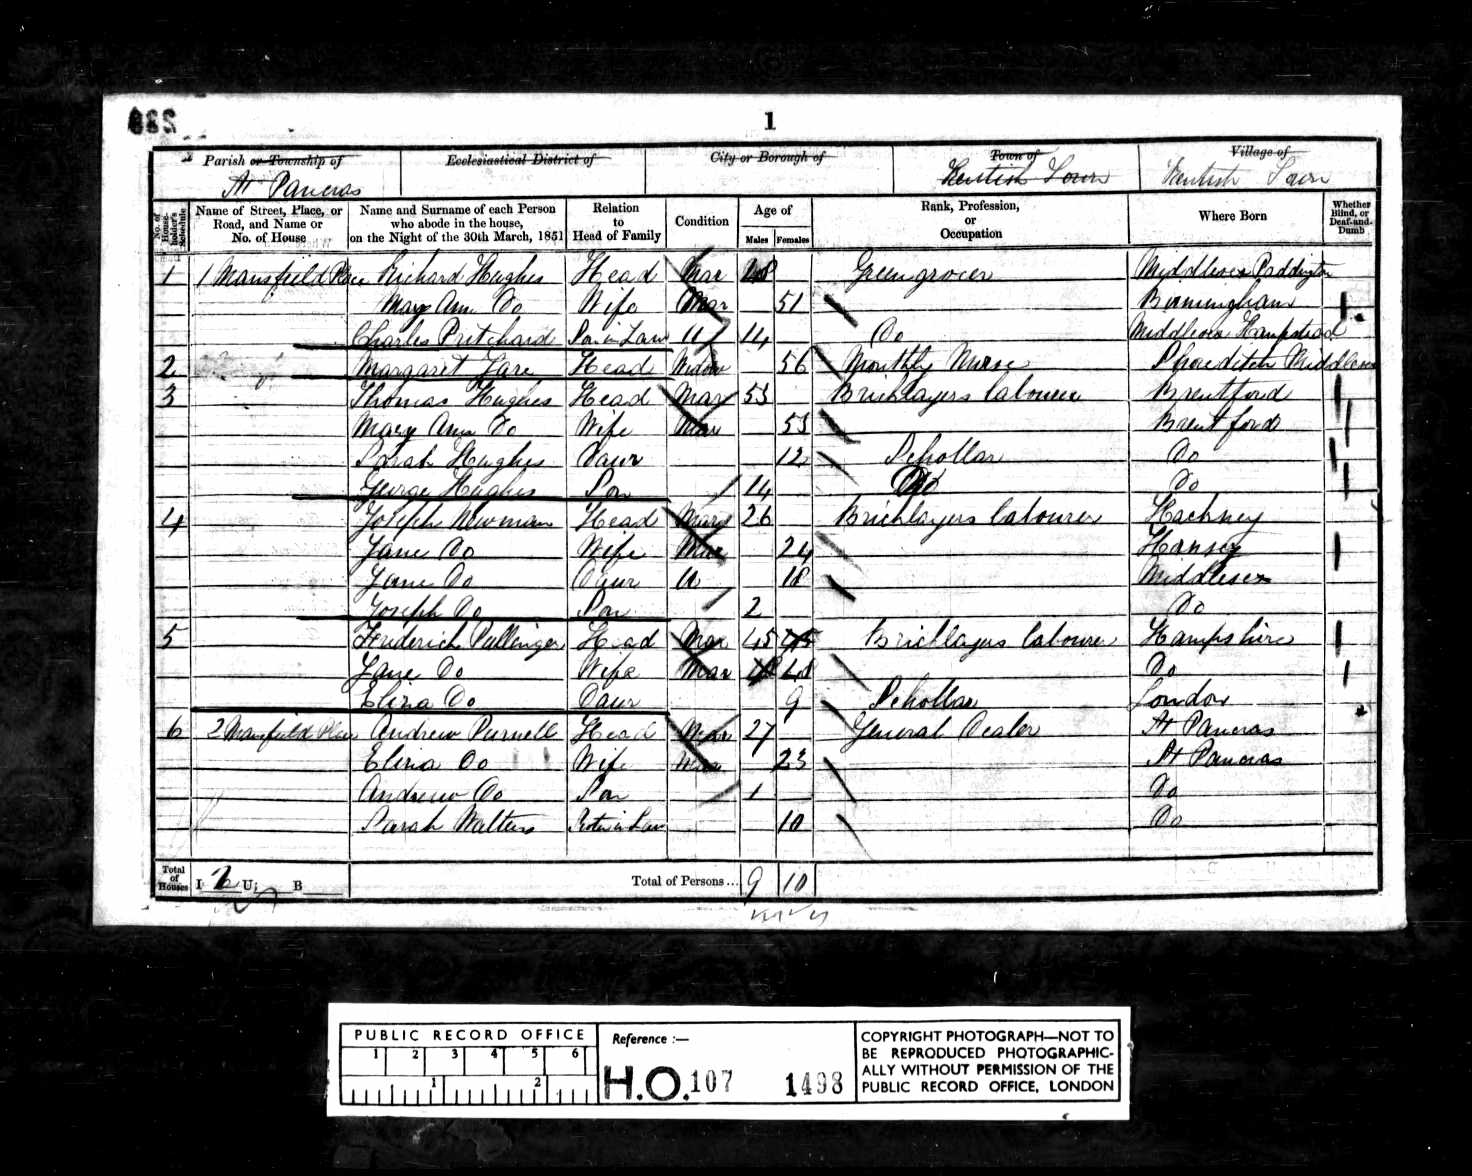 1
Parish or Township of Ecclesiastical District of City or Borough of Town of Village of
St Pancras Kentish Town Kentish Town
No. of Householder's Schedule
Name of Street, Place, or Road, and Name or No. of House
Name and Surname of each Person who abode in the house, on the Night of the 30th March, 1851
Relation to Head of Family
Condition
Age of
Males Females
Rank, Profession, or Occupation
Where Born
Whether Blind, or Deaf-and-Dumb
1 1 Mansfield Place Richard Hughes Head Mar 48 Greengrocer Middlesex Paddington
Mary Ann Do Wife Mar 51 Birmingham
Charles Pritchard Son in Law U 14 Do Middlesex Hampstead
2 Margaret Head Widow 56 Monthly Nurse Shoreditch Middlesex
3 Thomas Hughes Head Mar 53 Bricklayers labourer Brentford
Mary Ann Do Wife Mar 53 Brentford
Sarah Hughes Daur 12 Schollar Do
George Hughes Son 14 Do Do
4 Joseph Newman Head Mar 26 Bricklayers labourer Hackney
Jane Do Wife Mar 24 Hansey
Jane Do Daur U 18 Middlesex
Joseph Do Son 2 Do
5 Frederich Pullenger Head Mar 45 45 Bricklayers labourer Hampshire
Jane Do Wife Mar 48 48 Do
Eliza Do Daur 9 Schollar London
6 2 Mansfield Place Andrew Purnell Head Mar 27 General Dealer St Pancras
Eliza Do Wife Mar 23 St Pancras
Andrew Do Son 1 Do
Sarah Walters Sister in Law 10 Do
Total of Houses I 2 U B Total of Persons... 9 10
PUBLIC RECORD OFFICE
1 2 3 4 5 6
1 2
Reference :—
H.O. 107 1498
COPYRIGHT PHOTOGRAPH—NOT TO
BE REPRODUCED PHOTOGRAPHIC-
ALLY WITHOUT PERMISSION OF THE
PUBLIC RECORD OFFICE, LONDON